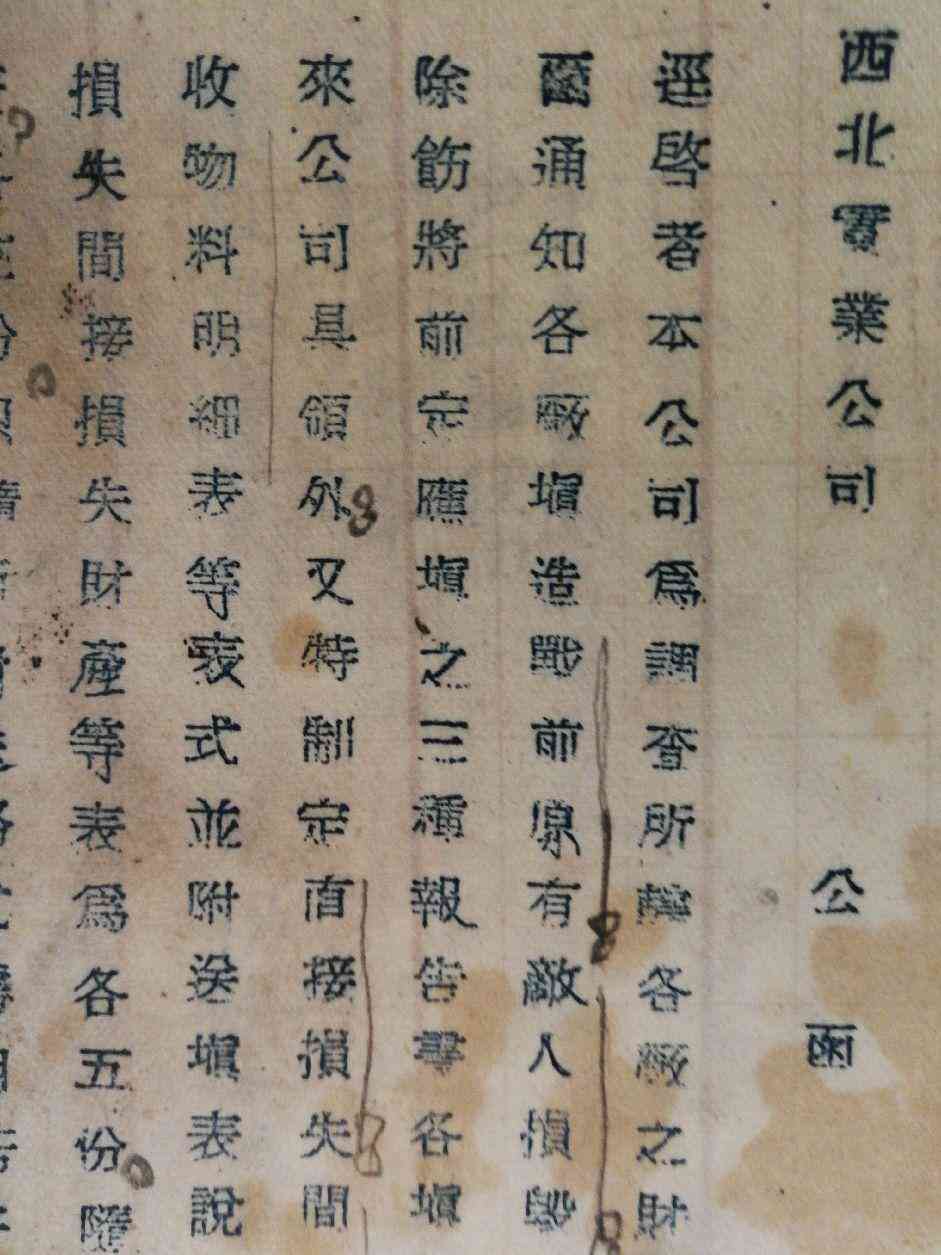 西北實業公司 公函
逕啓者本公司爲調查所轄各廠之財
圖通知各廠塡造戰前原有敵人損毀
除飭將前定應塡之三種報告書各塡
來公司具領外又特制定直接損失間
收物料明細表等表式並附送塡表說
損失間接損失財產等表爲各五份隨